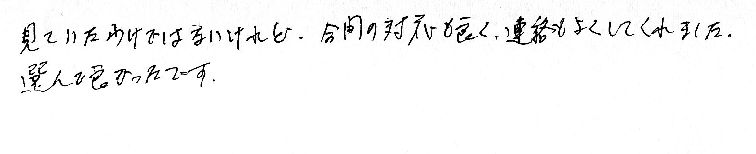 見ていたわけではないけれど、合間の対応も良く、連絡もよくしてくれました。
選んで良かったです。